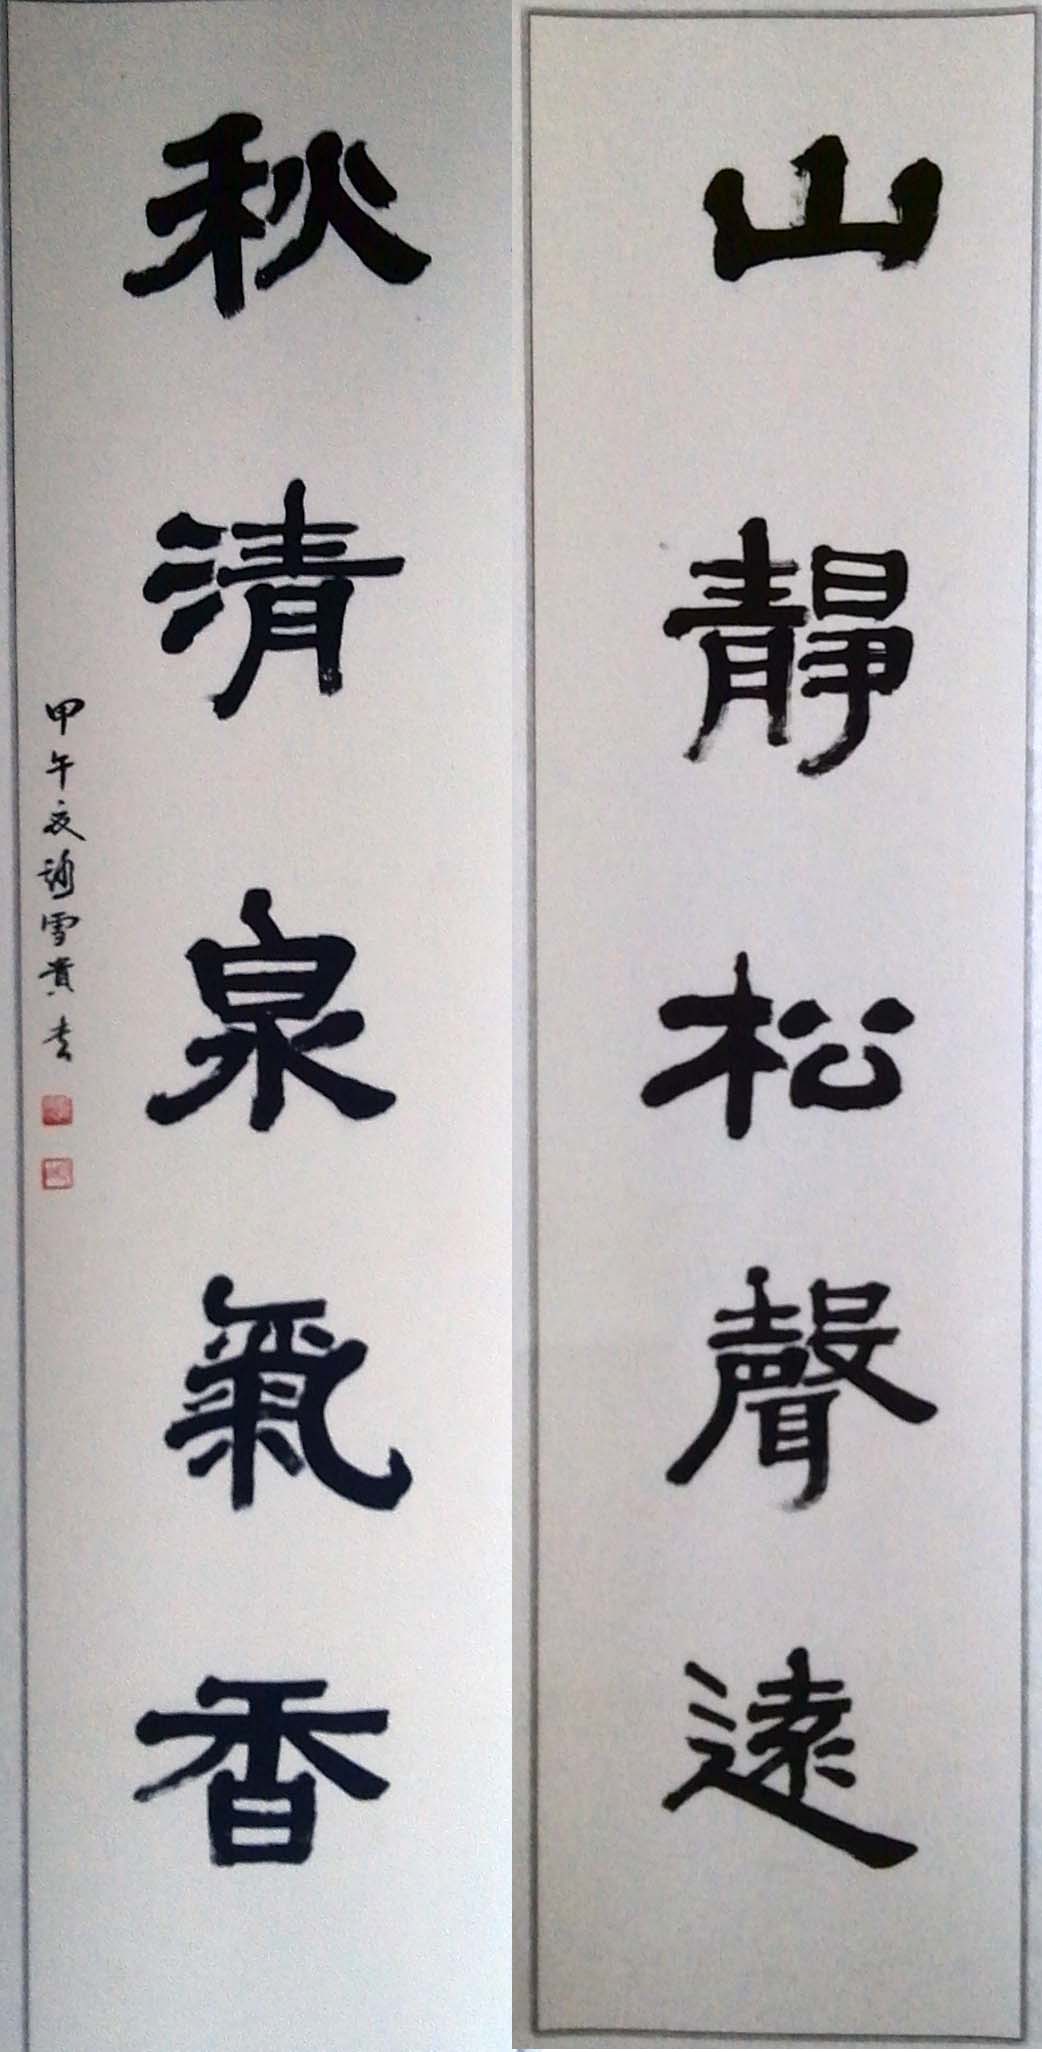 山靜松聲遠
秋清泉氣香
甲午夏謝雪貴書